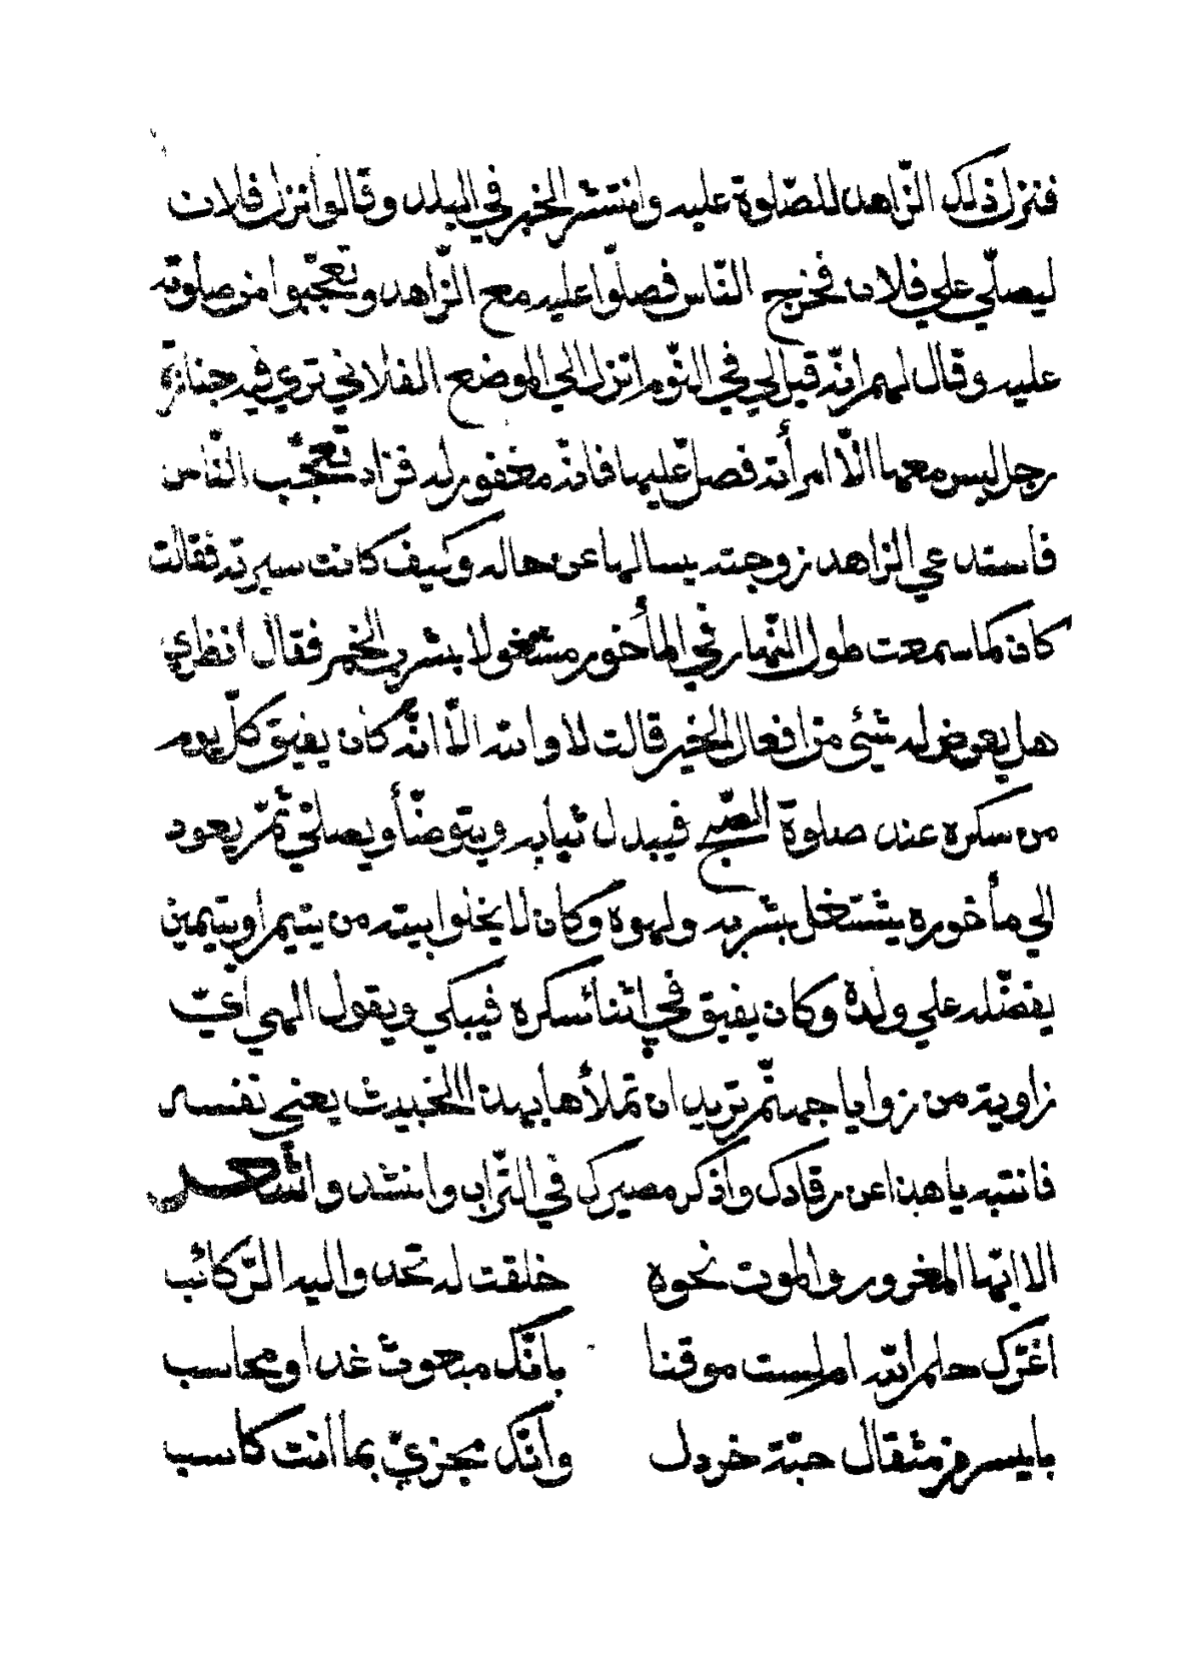 فنزل ذلك الزّاهد للصّلوة عليه وانتشر الخبر في البلد وقالوا نزل فلان
ليصلّي علي فلان فخرج النّاس فصلّوا عليه مع الزّاهد وتعجّبوا من صلوته
عليه وقال لهم انّه قيل لي في النّوم انزل الي الموضع الفلاني تري فيه جنازة
رجل ليس معها الّا امرأته فصلّ عليها فانّه مغفور له فزاد تعجّب النّاس
فاستدعي الزاهد زوجته يسالها عن حاله وكيف كانت سيرته فقالت
كان كما سمعت طول النّهار في المأخور مشغولا بشرب الخمر فقال انظري
هل يعرض له شئي من افعال الخير قالت لا والله الّا انّه كان يفيق كلّ يوم
من سكره عند صلوة الصّبح فيبدل ثيابه ويتوضّأ ويصلي ثمّ يعود
الي مأخوره يشتغل بشربه ولهوه وكان لا يخلوا بيته من يتيم او يتيمين
يفضّله علي ولده وكان يفيق في اثناء سكره فيبكي ويقول الهي ايّ
زاوية من زوايا جهنّم تريد ان تملأها بهذا الخبيث يعني نفسه
فانتبه يا هذا عن رقادك واذكر مصيرك في التّراب وانشد وا شعر
الا ايّها المغرور والموت نحوه خلقت له تحد واليه الرّكائب
اغرّك حلم الله ام لست موقنا بانّك مبعوث غدا ومحاسب
بايسر من مثقال حبّة خردل وانّك مجزيّ بما انت كاسب